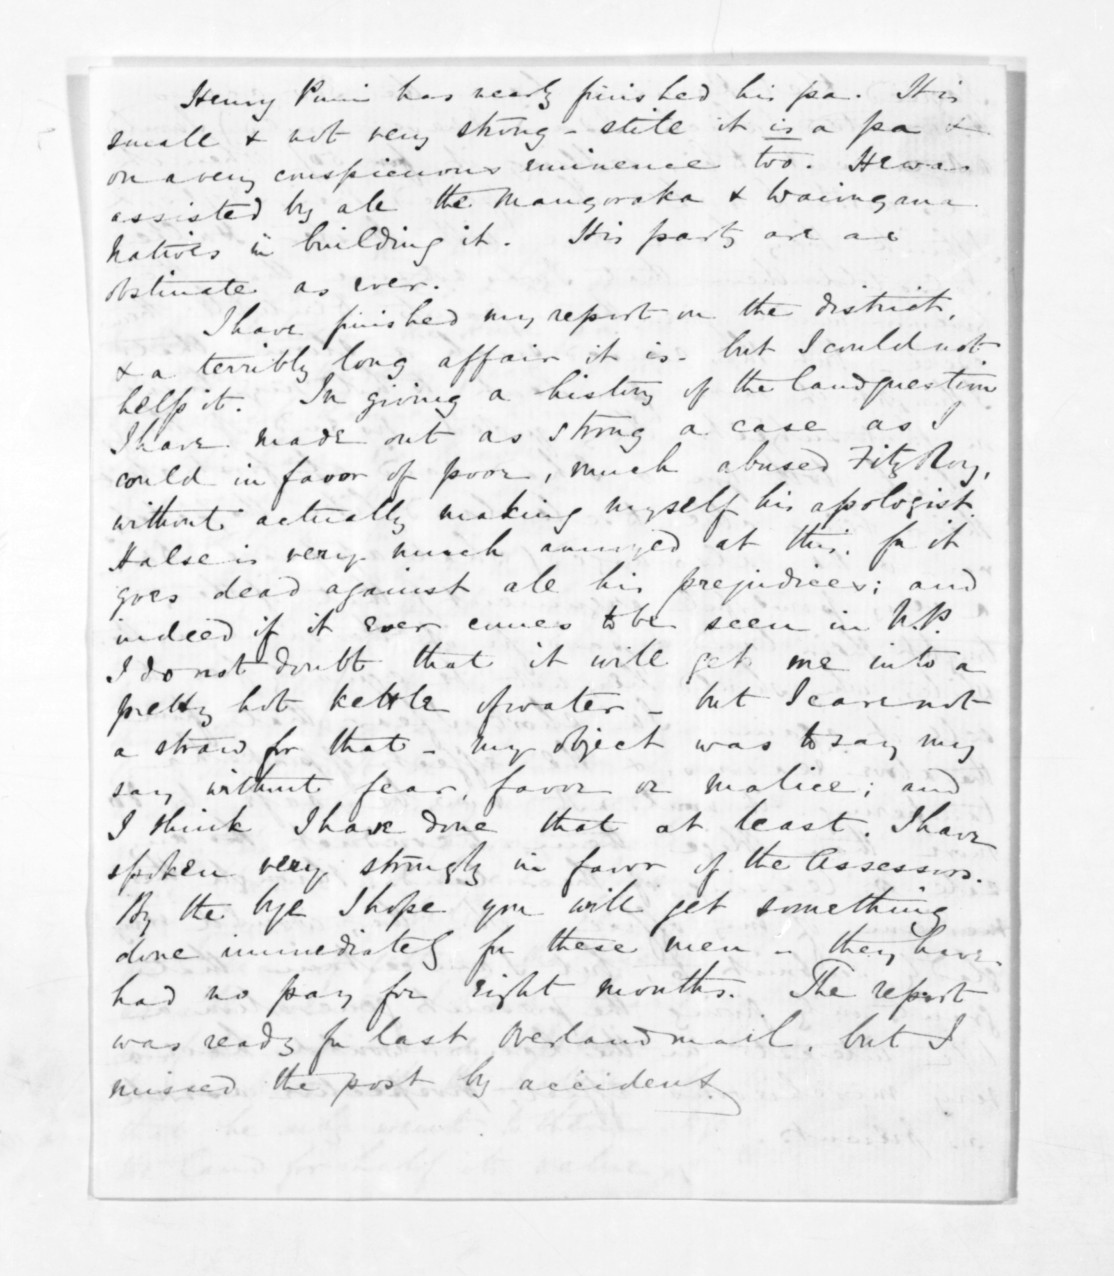 Henry Puni has nearly finished his pa. It is
small & not very strong - still it is a pa &
on a very conspicuous eminence too. He was
assisted by all the Mangoraka & Waiongana
Natives in building it. His party are as
obstinate as ever.
I have finished my report on the district,
& a terribly long affair it is - but I could not
help it. In giving a history of the land question
I have made out as strong a case as I
could in favor of poor, much abused FitzRoy,
without actually making myself his apologist.
Halse is very much annoyed at this, for it
goes dead against all his prejudices; and
indeed if it ever comes to be seen in N.P.
I do not doubt that it will get me into a
pretty hot kettle of water - but I care not
a straw for that - my object was to say my
say without fear, favor or malice; and
I think I have done that at least. I have
spoken very strongly in favor of the Assessors.
By the bye I hope you will get something
done immediately for these men - they have
had no pay for eight months. The report
was ready for last Overland mail, but I
missed the post by accident